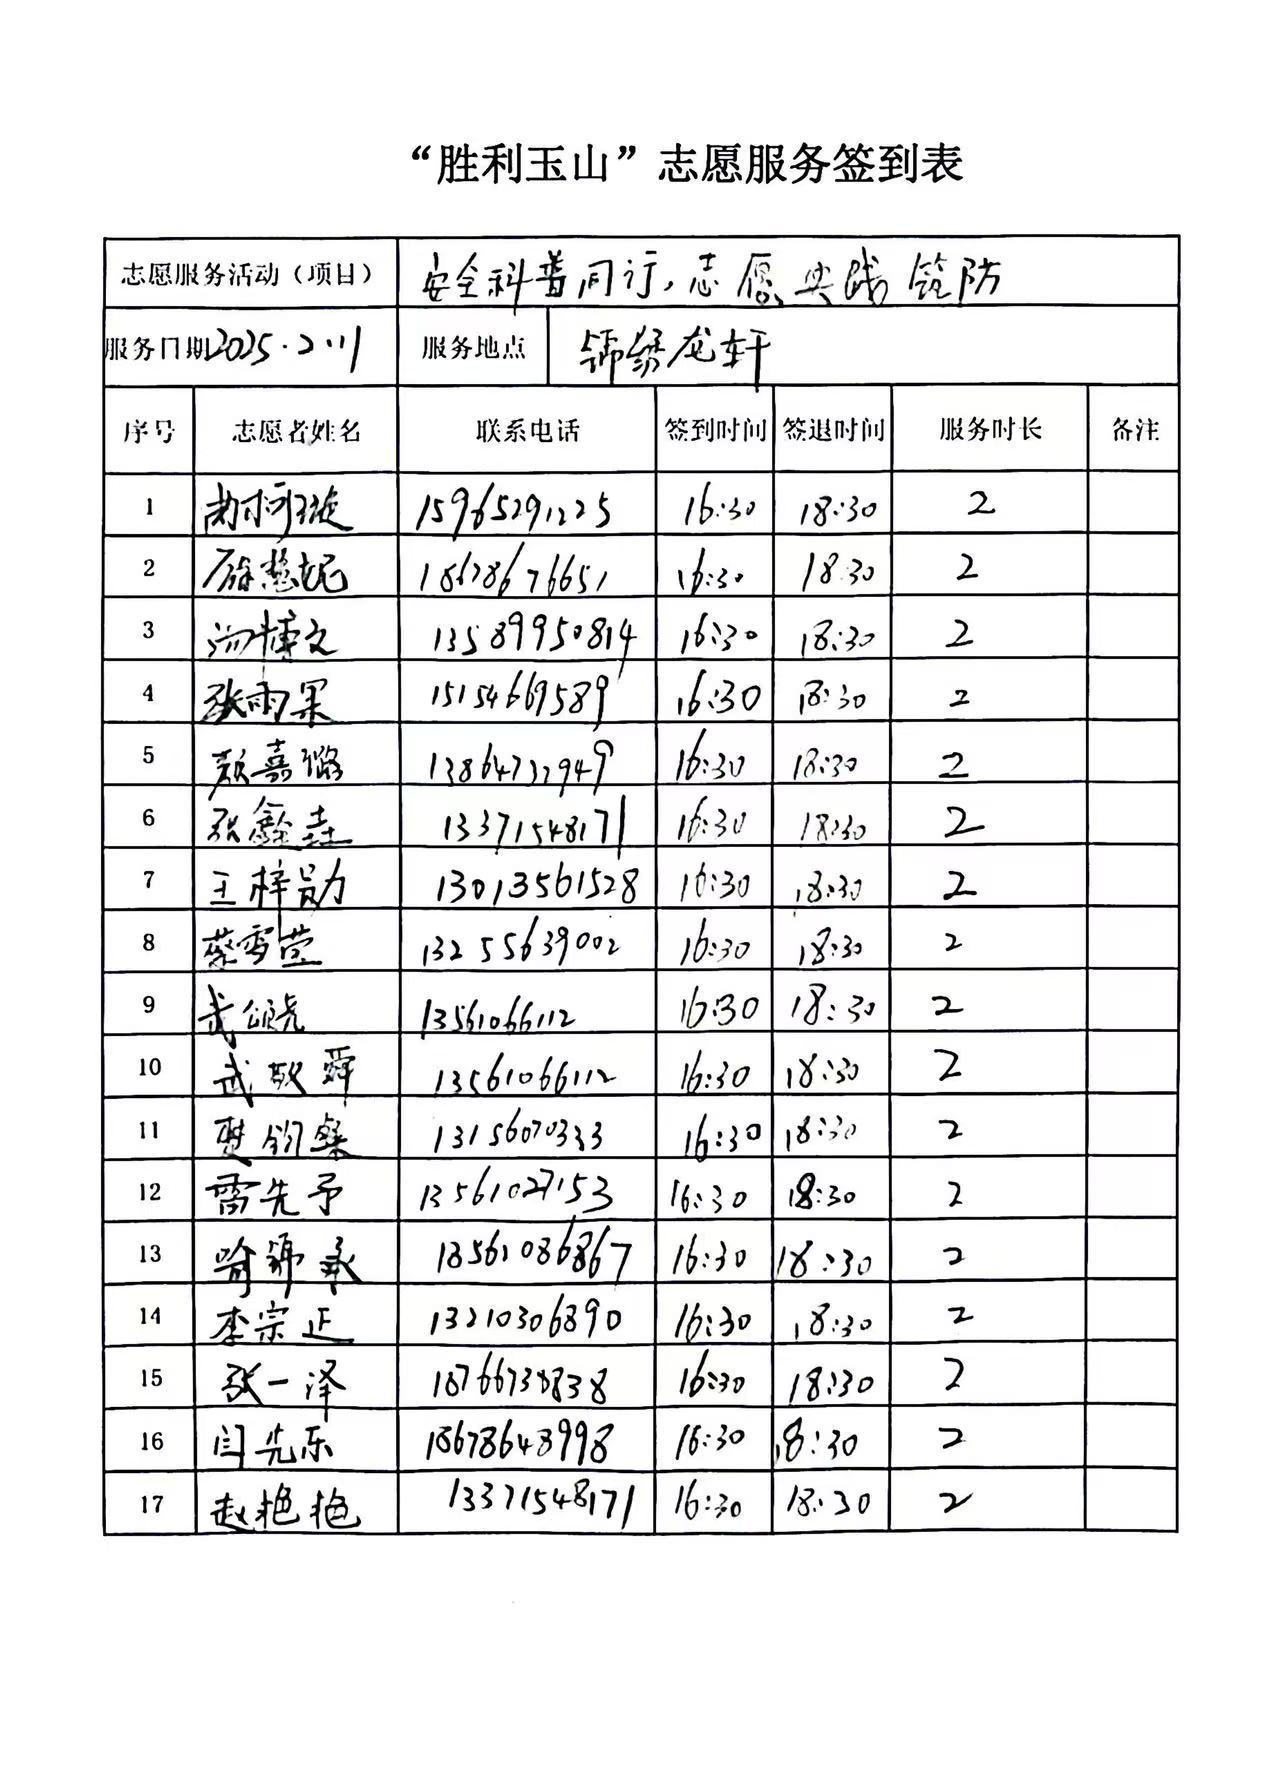 “胜利玉山”志愿服务签到表
志愿服务活动（项目） 安全科普同行，志愿实践筑防
服务日期 2025.2.11 服务地点 锦绣龙轩
序号 志愿者姓名 联系电话 签到时间 签退时间 服务时长 备注
1 15965291225 16:30 18:30 2
2 18678676651 16:30 18:30 2
3 博文 13589950814 16:30 18:30 2
4 张雨果 15154669589 16:30 18:30 2
5 颜嘉璐 13864732949 16:30 18:30 2
6 张鑫垚 13371548171 16:30 18:30 2
7 王梓勋 13013561528 16:30 18:30 2
8 蔡雪莹 13255639002 16:30 18:30 2
9 武 13561066112 16:30 18:30 2
10 武敬舜 13561066112 16:30 18:30 2
11 楚钧 13156070333 16:30 18:30 2
12 雷先予 13561027153 16:30 18:30 2
13 喻锦承 18561086867 16:30 18:30 2
14 李宗正 13210306890 16:30 18:30 2
15 张一泽 18766738838 16:30 18:30 2
16 闫先乐 18678648998 16:30 18:30 2
17 赵艳艳 13371548171 16:30 18:30 2